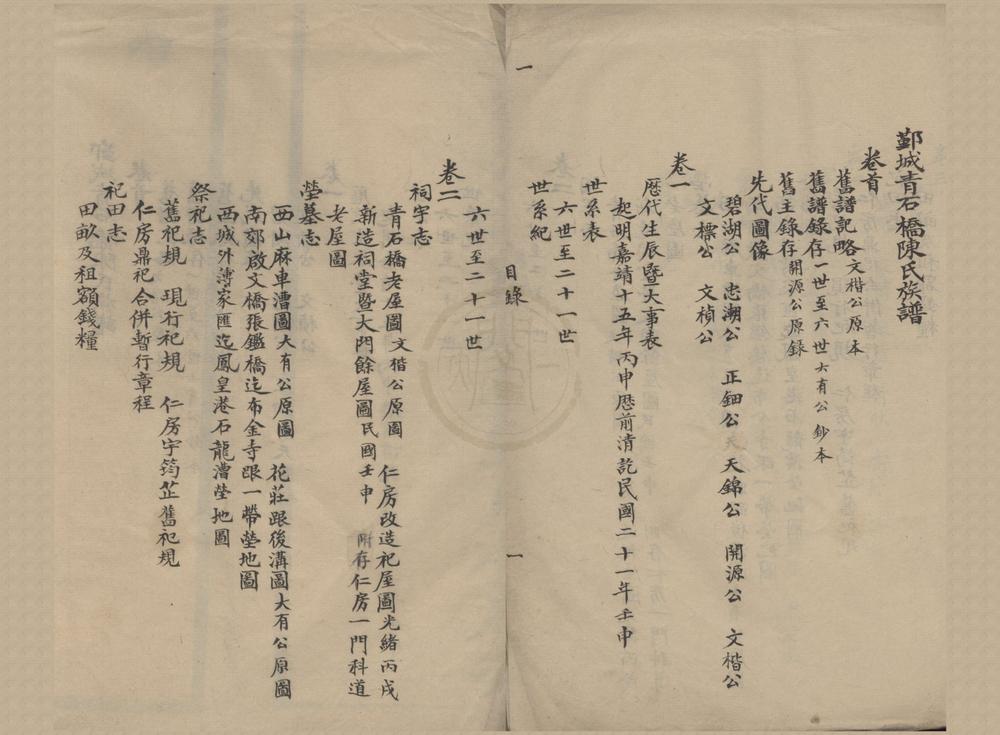 鄞城青石橋陳氏族譜
卷首
舊譜記略文楷公原本
舊譜錄存一世至六世大有公鈔本
舊主錄存開源公原錄
先代圖像
碧湖公 忠湖公 正鈿公 天錦公 開源公 文楷公
文標公 文楨公
卷一
歷代生辰暨大事表
起明嘉靖十五年丙申歷前清訖民國二十一年壬申
世系表
六世至二十一世
世系紀
目錄
一
一
六世至二十一世
卷二
祠宇志
青石橋老屋圖文楷公原圖 仁房改造祀屋圖光緒丙戌
新造祠堂暨大門餘屋圖民國壬申 附存仁房一門科道
老屋圖
塋墓志
西山麻車漕圖大有公原圖 花莊跟後溝圖大有公原圖
南郊啟文橋張鑑橋迄布金寺跟一帶塋地圖
西城外薄家匯迄鳳皇港石龍漕塋地圖
祭祀志
舊祀規 現行祀規 仁房宇筠芷舊祀規
仁房鼎祀合併暫行章程
祀田志
田畝及租額錢糧